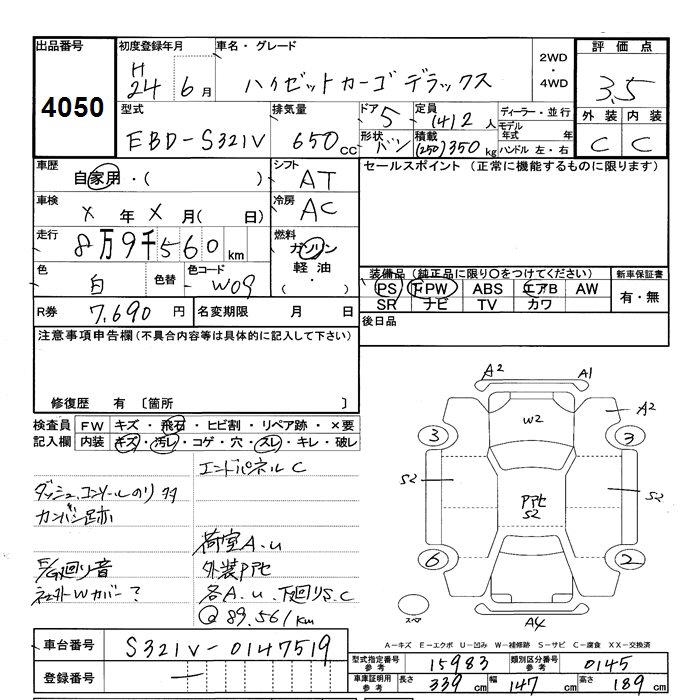 出品番号 初度登録年月 車名・グレード 2WD・4WD 評価点
4050 H24 6月 ハイゼットカーゴ デラックス 3.5
型式 排気量 ドア 5 定員 (4)2人 ディーラー・並行 外装 内装
EBD-S321V 650cc 形状 バン 積載 (250)350kg モデル年式 年 C C
ハンドル 左・右
車歴 自家用・( ) シフト AT セールスポイント(正常に機能するものに限ります)
車検 X年X月( 日) 冷房 AC
走行 8万9千560km 燃料 ガソリン 軽油・( )
色 白 色替 色コード W09 装備品(純正品に限り○をつけてください) 新車保証書
PS PW ABS エアB AW 有・無
SR ナビ TV カワ
R券 7,690円 名変期限 月 日 後日品
注意事項申告欄(不具合内容等は具体的に記入して下さい)
修復歴 有 〔箇所 〕
検査員 FW キズ・飛石・ヒビ割・リペア跡・×要
記入欄 内装 キズ・汚レ・コゲ・穴・スレ・キレ・破レ
エンドパネル C
ダッシュ、コンソールのり
カンバン跡
荷室A.U
E/G廻り音 外装PPセ
社外Wカバー? 各A.U、下廻りS.C
@89.561km
A2 A1
W2 A2
3 3
S2 PPセ S2 S2
6 2
スペア A4
A-キズ E-エクボ U-凹み W-補修跡 S-サビ C-腐食 XX-交換済
車台番号 S321V-0147519
登録番号 ー
型式指定番号 参考 15983 類別区分番号 参考 0145
車庫証明用 参考 長さ 339cm 幅 147cm 高さ 189cm